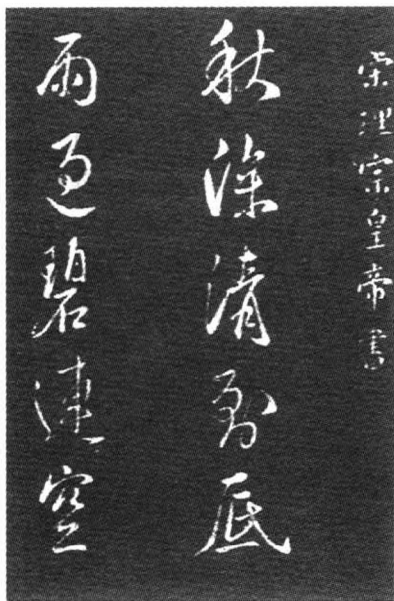 宋理宗皇帝書
秋深清到底
雨過碧連空